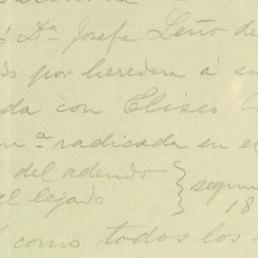 ó Dª Josefa Leño de
do por heredera á su
da con Eliseo
nª radicada en el
del adeudo
el legado } segun
18
á como todos los